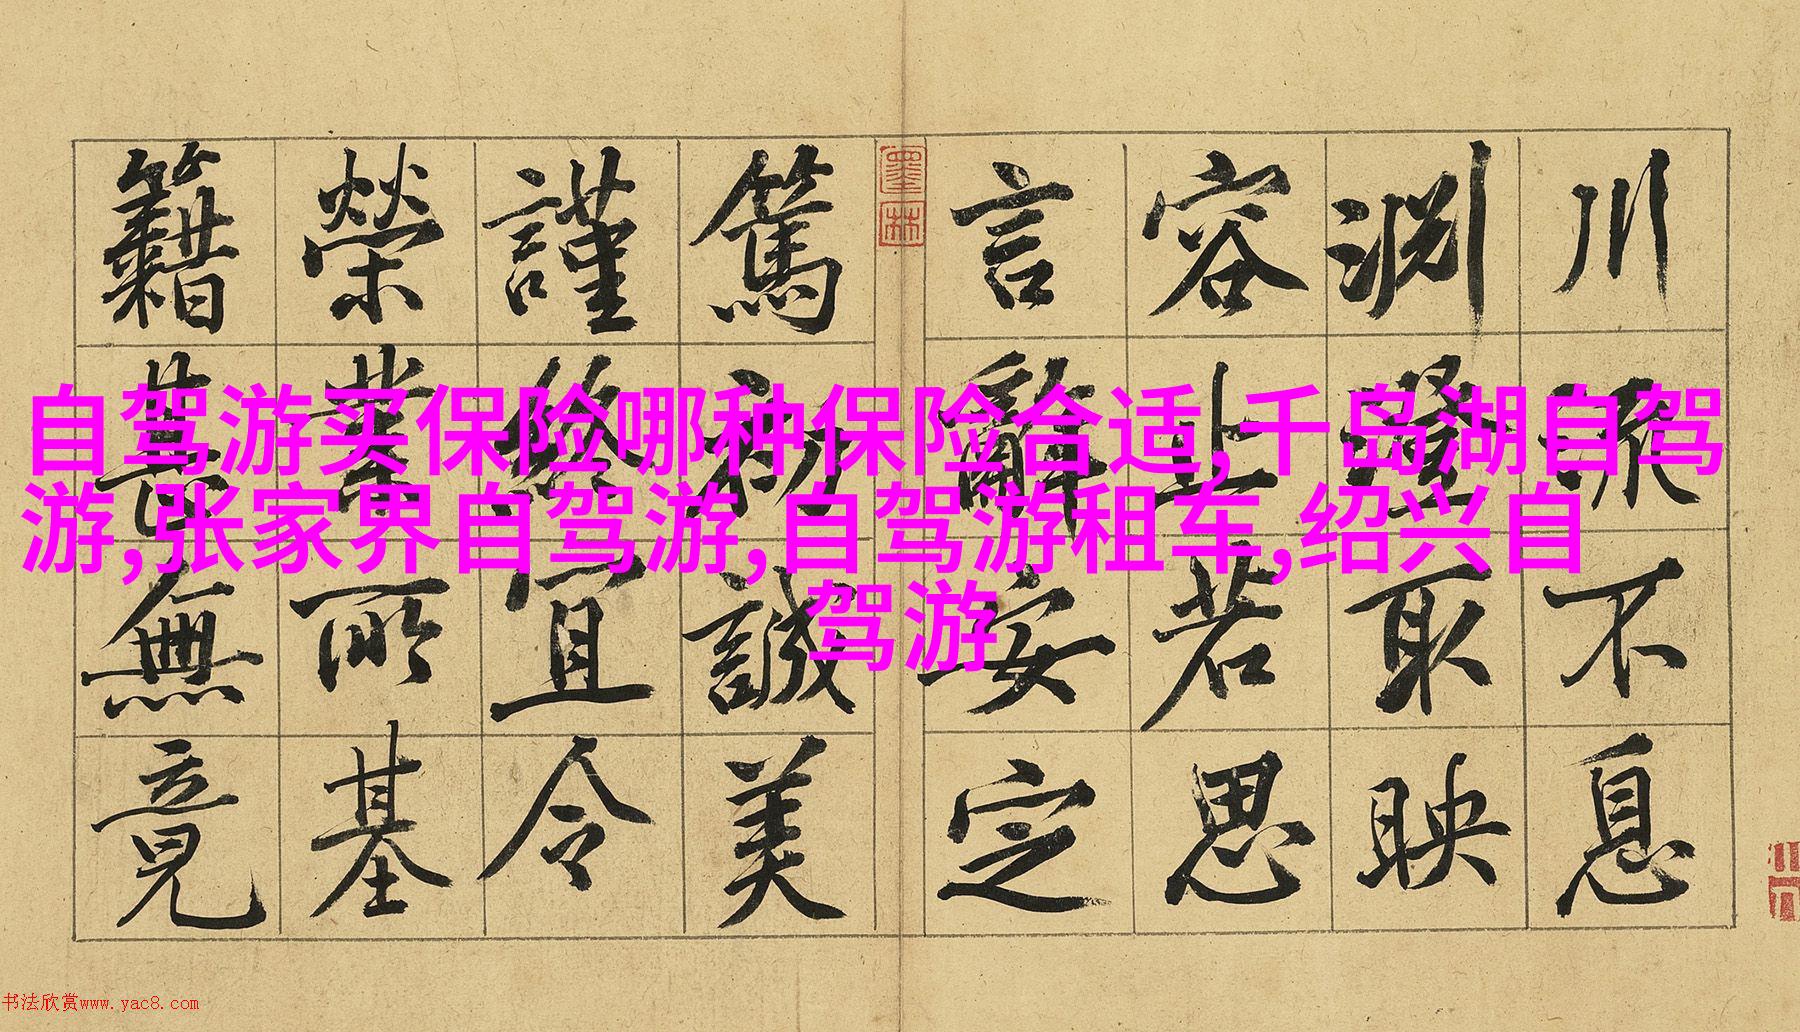 川流不息
淵澄取映
容止若思
言辭安定
墨林
篤初誠美
謹終宜令
榮業所基
籍甚無竟
自驾游买保险哪种保险合适,千岛湖自驾
游,张家界自驾游,自驾游租车,绍兴自
驾游
书法欣赏www.yac8.com